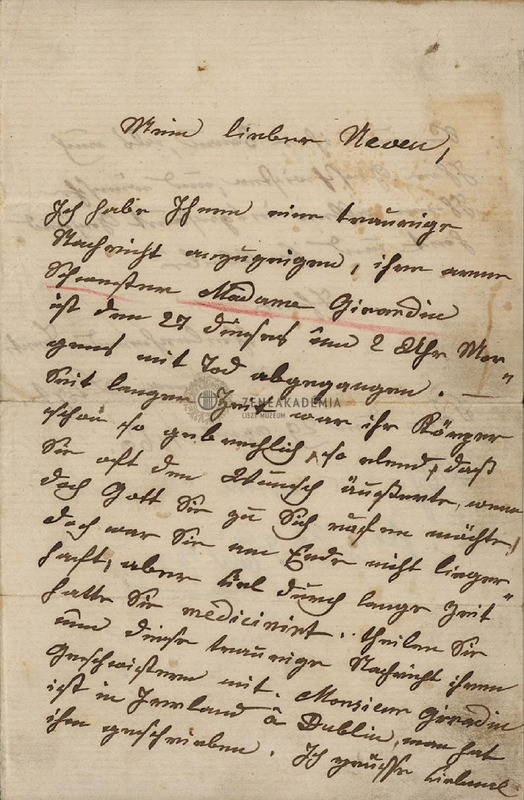 Mein lieber Neveu,
Ich habe Ihnen eine traurige
Nachricht anzuzeigen, ihre arme
Schwester Madame Girardin
ist den 27 dieses um 2 Uhr Mor„
gens mit Tod abgegangen. —
Seit langer Zeit war ihr Körper
schon so gebrechlich, so elend, daß
Sie oft den Wunsch äußerte, wenn
doch Gott Sie zu Sich rufen möchte,
doch war Sie am Ende nicht linger„
haft, aber viel durch lange Zeit
hatte Sie medicinirt. theilen Sie
nun diese traurige Nachricht ihren
Geschwistern mit. Monsieur Girardin
ist in Irrland à Dublin, man hat
ihm geschrieben. Ich grüsse
ZENEAKADEMIA
LISZT MÚZEUM